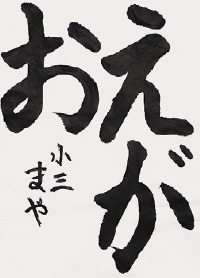 えが
お
小三
まや